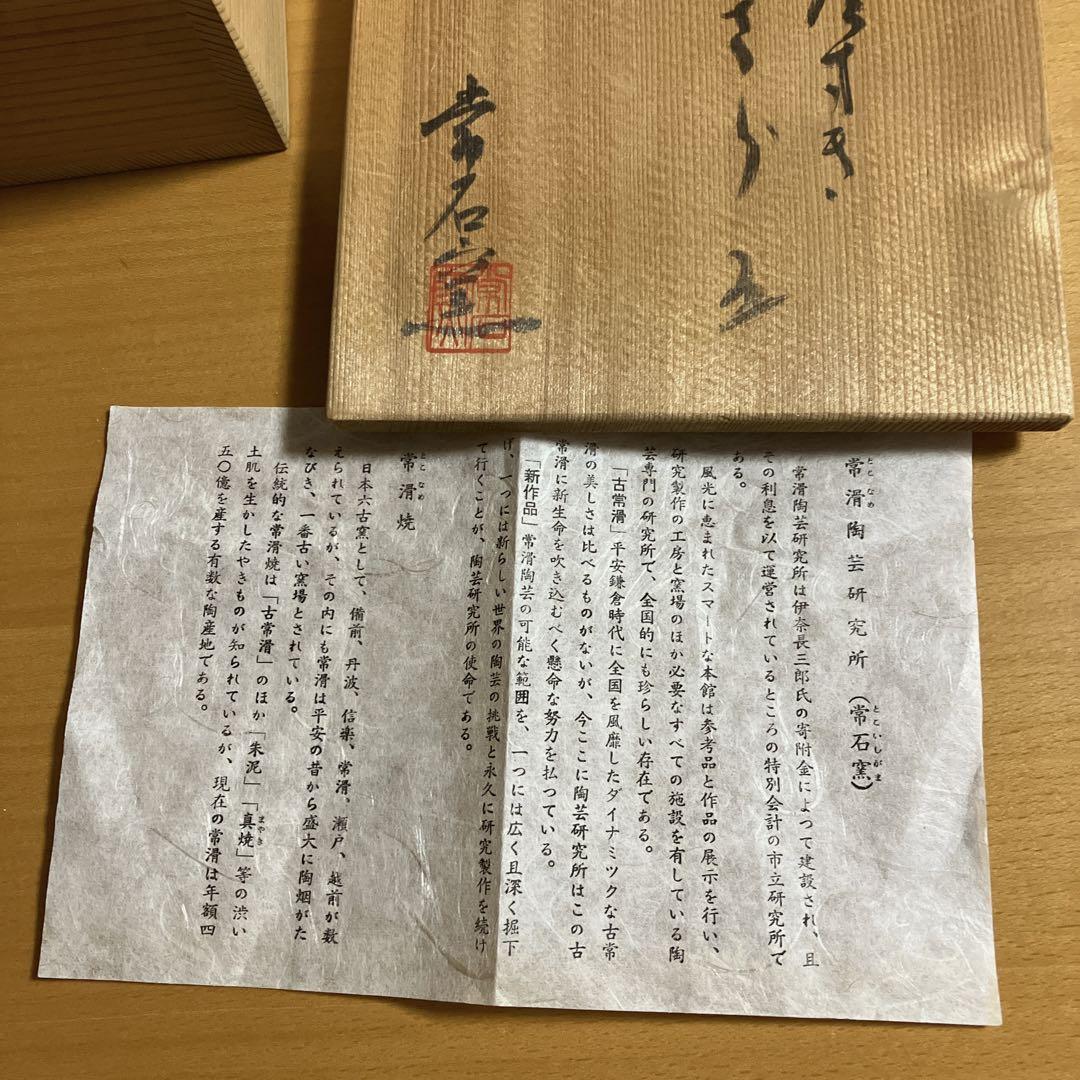 常石窯
常滑陶芸研究所（常石窯）
とこなめ
とこいしがま
常滑陶芸研究所は伊奈長三郎氏の寄附金によつて建設され、且
その利息を以て運営されているところの特別会計の市立研究所で
ある。
風光に恵まれたスマートな本館は参考品と作品の展示を行い、
研究製作の工房と窯場のほか必要なすべての施設を有している陶
芸専門の研究所で、全国的にも珍らしい存在である。
「古常滑」平安鎌倉時代に全国を風靡したダイナミツクな古常
滑の美しさは比べるものがないが、今ここに陶芸研究所はこの古
常滑に新生命を吹き込むべく懸命な努力を払つている。
「新作品」常滑陶芸の可能な範囲を、一つには広く且深く掘下
げ、一つには新らしい世界の陶芸の挑戦と永久に研究製作を続け
て行くことが、陶芸研究所の使命である。
常滑焼
とこなめ
日本六古窯として、備前、丹波、信楽、常滑、瀬戸、越前が数
えられているが、その内にも常滑は平安の昔から盛大に陶烟がた
なびき、一番古い窯場とされている。
伝統的な常滑焼は「古常滑」のほか「朱泥」「真焼」等の渋い
まやき
土肌を生かしたやきものが知られているが、現在の常滑は年額四
五〇億を産する有数な陶産地である。